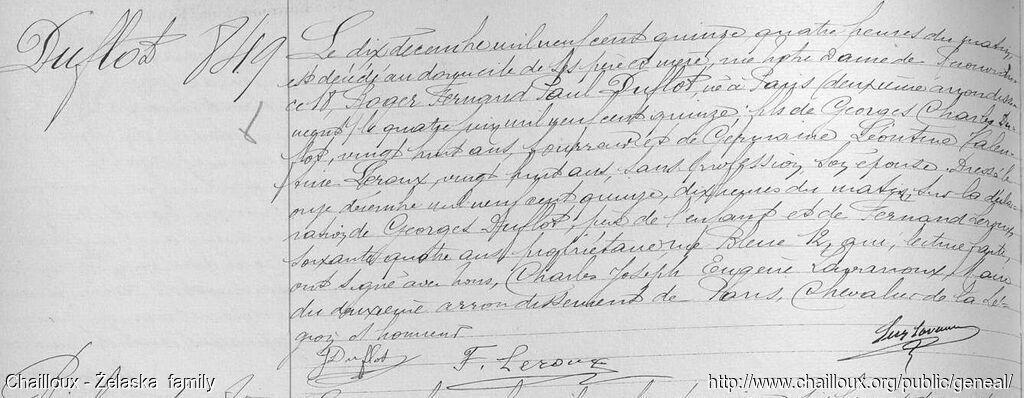 Duflot 849
Le dix décembre mil neuf cent quinze quatre heures du matin,
est décédé au domicile de ses père et mère, rue Notre Dame de Recouvran
ce 18, Roger Fernand Paul Duflot né à Paris (deuxième arrondisse
ment) le quatre juin mil neuf cent quinze, fils de Georges Charles Du-
flot, vingt huit ans, et de Germaine Léontine Valen
tine Leroux, vingt ans, sans profession, son épouse. Dressé le
onze décembre mil neuf cent quinze, dix heures du matin, sur la décla
ration de Georges Duflot, père de l'enfant et de Fernand Leroux,
soixante quatre ans, propriétaire, rue Bleue 12, qui, lecture faite,
ont signé avec nous, Charles Joseph Eugène
du deuxième arrondissement de Paris, Chevalier de la Lé-
gion d'honneur
Duflot F. Leroux
Chailloux - Żelaska family http://www.chailloux.org/public/geneal/